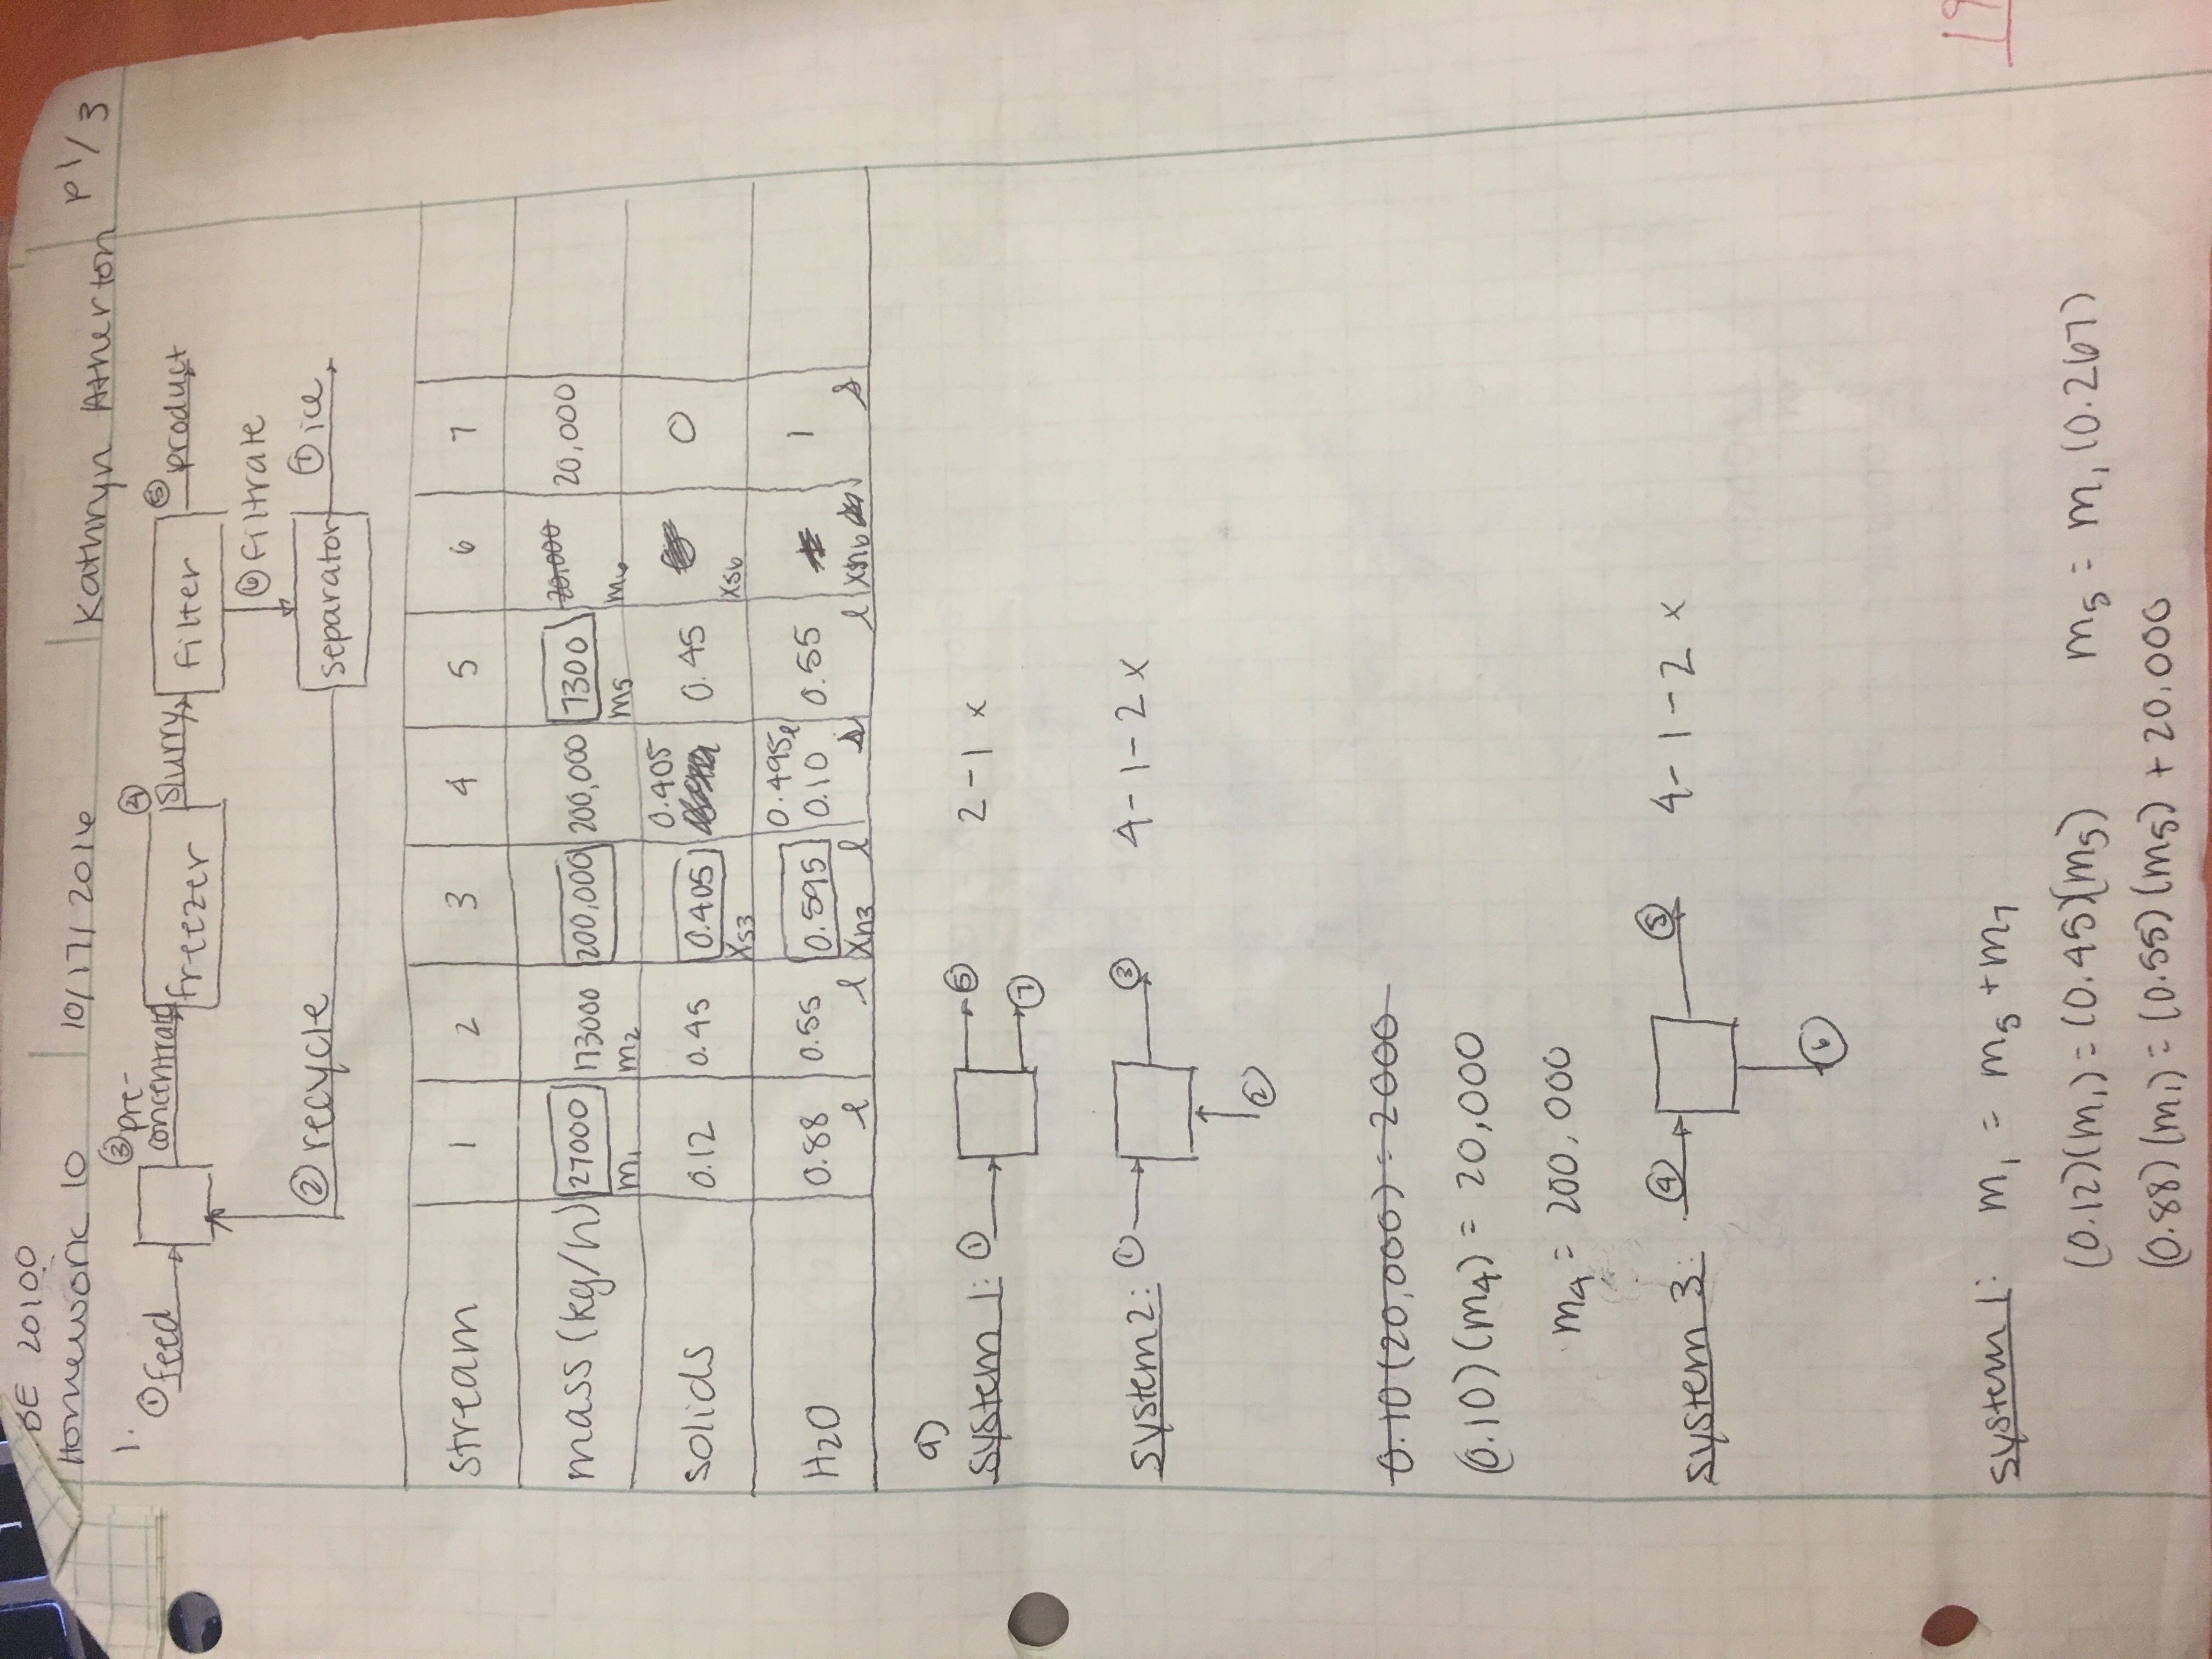 BE 20100
Homework 10 10/17/2016 Kathryn Atherton P1/3
1.
① feed ③ pre-concentrate freezer ④ slurry filter ⑤ product
⑥ filtrate
② recycle separator ⑦ ice
stream 1 2 3 4 5 6 7
mass (kg/h) 27000 173000 200,000 200,000 7300 20,000 20,000
m₁ m₂ m₅ m₆
0.405
solids 0.12 0.45 0.405 0.45 0
xs3 xs6
0.495 l
H2O 0.88 0.55 0.595 0.10 0.55 1
l l xh3 l s l xh6 s
a)
system 1: ① ⑤ 2-1 x
⑦
system 2: ① ③ 4-1-2 x
②
0.10 (20,000) = 2000
(0.10)(m₄) = 20,000
m₄ = 200,000
system 3: ④ ⑤ 4-1-2 x
⑥
system 1: m₁ = m₅ + m₇
(0.12)(m₁) = (0.45)(m₅) m₅ = m₁(0.267)
(0.88)(m₁) = (0.55)(m₅) + 20,000